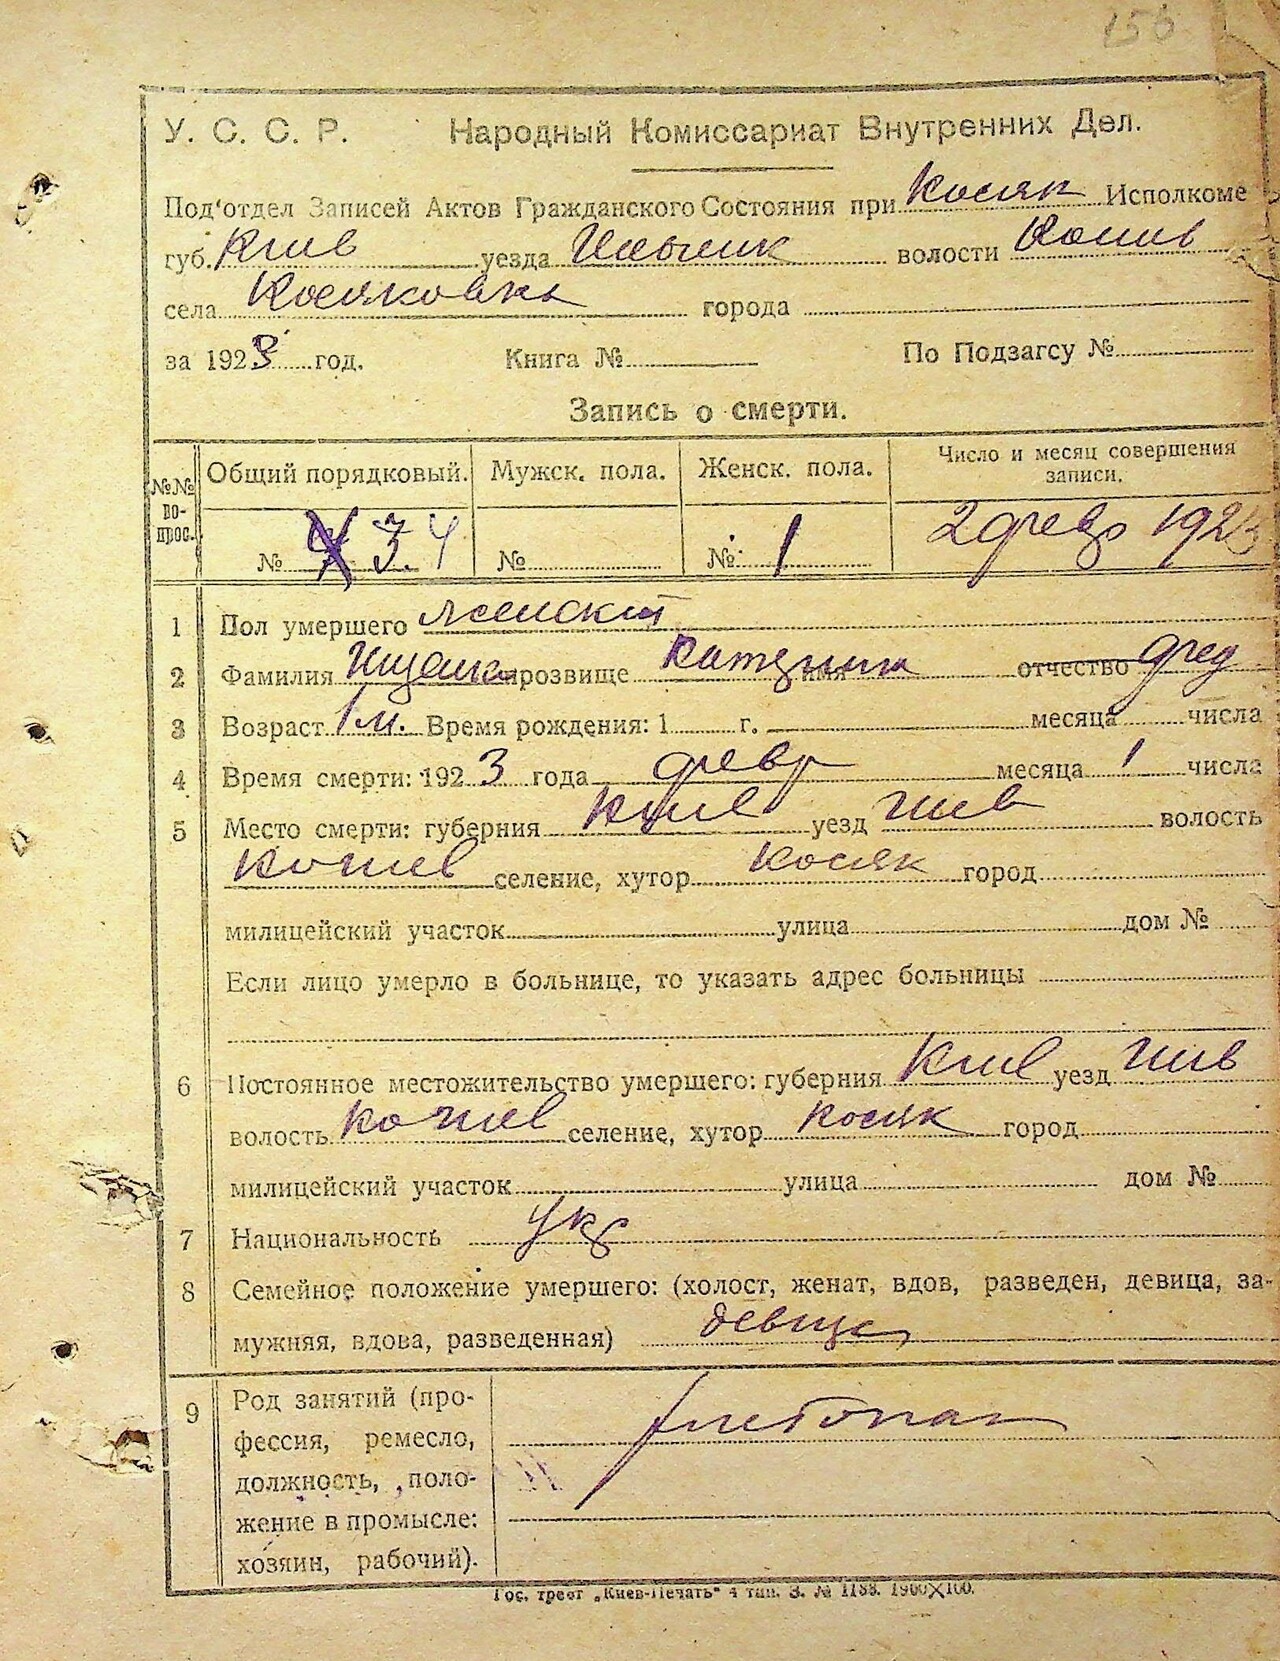 156
У. С. С. Р. Народный Комиссариат Внутренних Дел.
Под'отдел Записей Актов Гражданского Состояния при Косяк Исполкоме
губ. Киев уезда волости
села Косяковка города
за 1923 год. Книга № По Подзагсу №
Запись о смерти.
№№ вопрос. Общий порядковый. Мужск. пола. Женск. пола. Число и месяц совершения записи.
№ 3. 4 № № 1 2 февр 1923
1 Пол умершего женский
2 Фамилия прозвище Катерина имя отчество
3 Возраст 1 м. Время рождения: 1 г. месяца числа
4 Время смерти: 1923 года февр месяца 1 числа
5 Место смерти: губерния Киев уезд волость
селение, хутор Косяк город
милицейский участок улица дом №
Если лицо умерло в больнице, то указать адрес больницы
6 Постоянное местожительство умершего: губерния Киев уезд
волость селение, хутор Косяк город
милицейский участок улица дом №
7 Национальность укр
8 Семейное положение умершего: (холост, женат, вдов, разведен, девица, за-
мужняя, вдова, разведенная) девица
9 Род занятий (про-
фессия, ремесло,
должность, поло-
жение в промысле:
хозяин, рабочий).
Гос. трест „Киев-Печать“ 4 тип. З. № 1188. 1900×100.